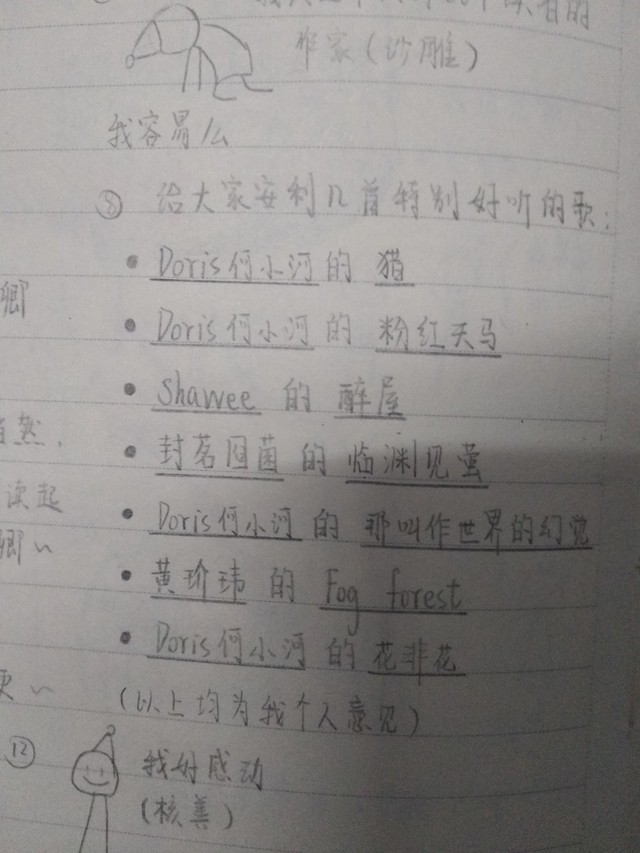 作家(沙雕)
我容易么
⑧ 给大家安利几首特别好听的歌:
• Doris何小河的 猎
• Doris何小河的 粉红天马
• Shawee 的 醉屋
卿
• 封茗囧菌的 临渊见萤
读起
• Doris何小河的 那叫作世界的幻觉
卿~
• 黄玠玮的 Fog forest
• Doris何小河的 花非花
(以上均为我个人意见)
⑫ 我好感动
(核善)